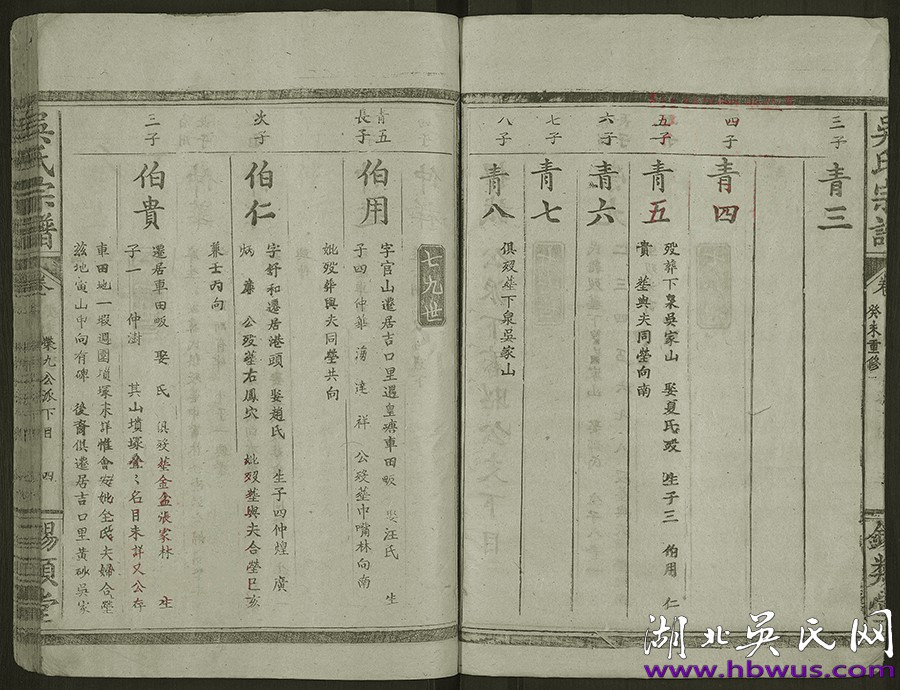 吳氏宗譜
癸未重修
三子
青三
四子
青四
五子
青五
歿葬下泉吳家山 娶夏氏歿 生子三 伯用 仁
貴 塟與夫同塋向南
六子
青六
七子
青七
八子
青八
俱歿塟下泉吳家山
七九世
青五
長子
伯用
字官山遷居吉口里遇皇塘車田畈 娶汪氏 生
子四 仲華 達 祥 公歿塟巾嘴林向南
妣歿葬與夫同塋共向
次子
伯仁
字好和遷居港頭 娶趙氏 生子四仲煌 廣
炳 公歿塟右鳳穴 妣歿塟與夫合塋巳亥
兼壬丙向
三子
伯貴
遷居車田畈 娶氏 俱歿塟金盆張家林 生
子一 仲澍 其山墳塚名目未詳又公存
車田地一塅週圍墳塚未詳惟會安妣全氏夫婦合塋
茲地寅山申向有碑 後裔俱遷居吉口里黃砂吳家
吳氏宗譜
卷
榮九公派下目 四
錫類堂
湖北吴氏网
www.hbwus.com